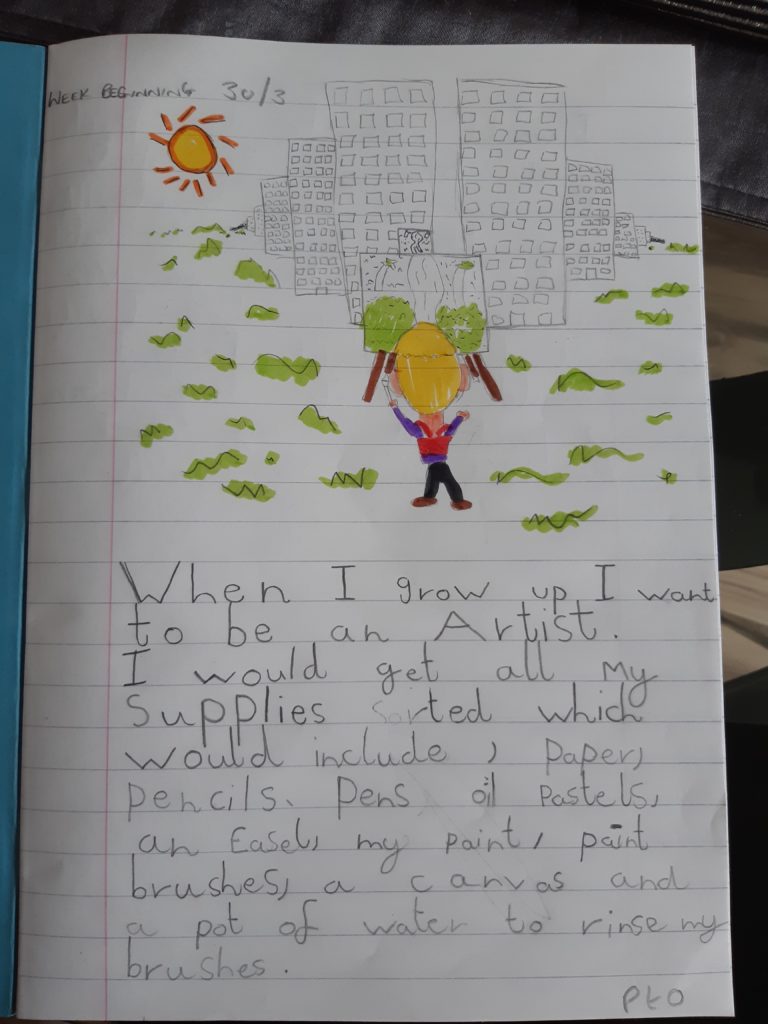 WEEK BEGINNING 30/3
When I grow up I want
to be an Artist.
I would get all My
Supplies Sorted which
would include , paper,
pencils. Pens oil pastels,
an Easel, my paint, paint
brushes, a canvas and
a pot of water to rinse my
brushes.
PtO